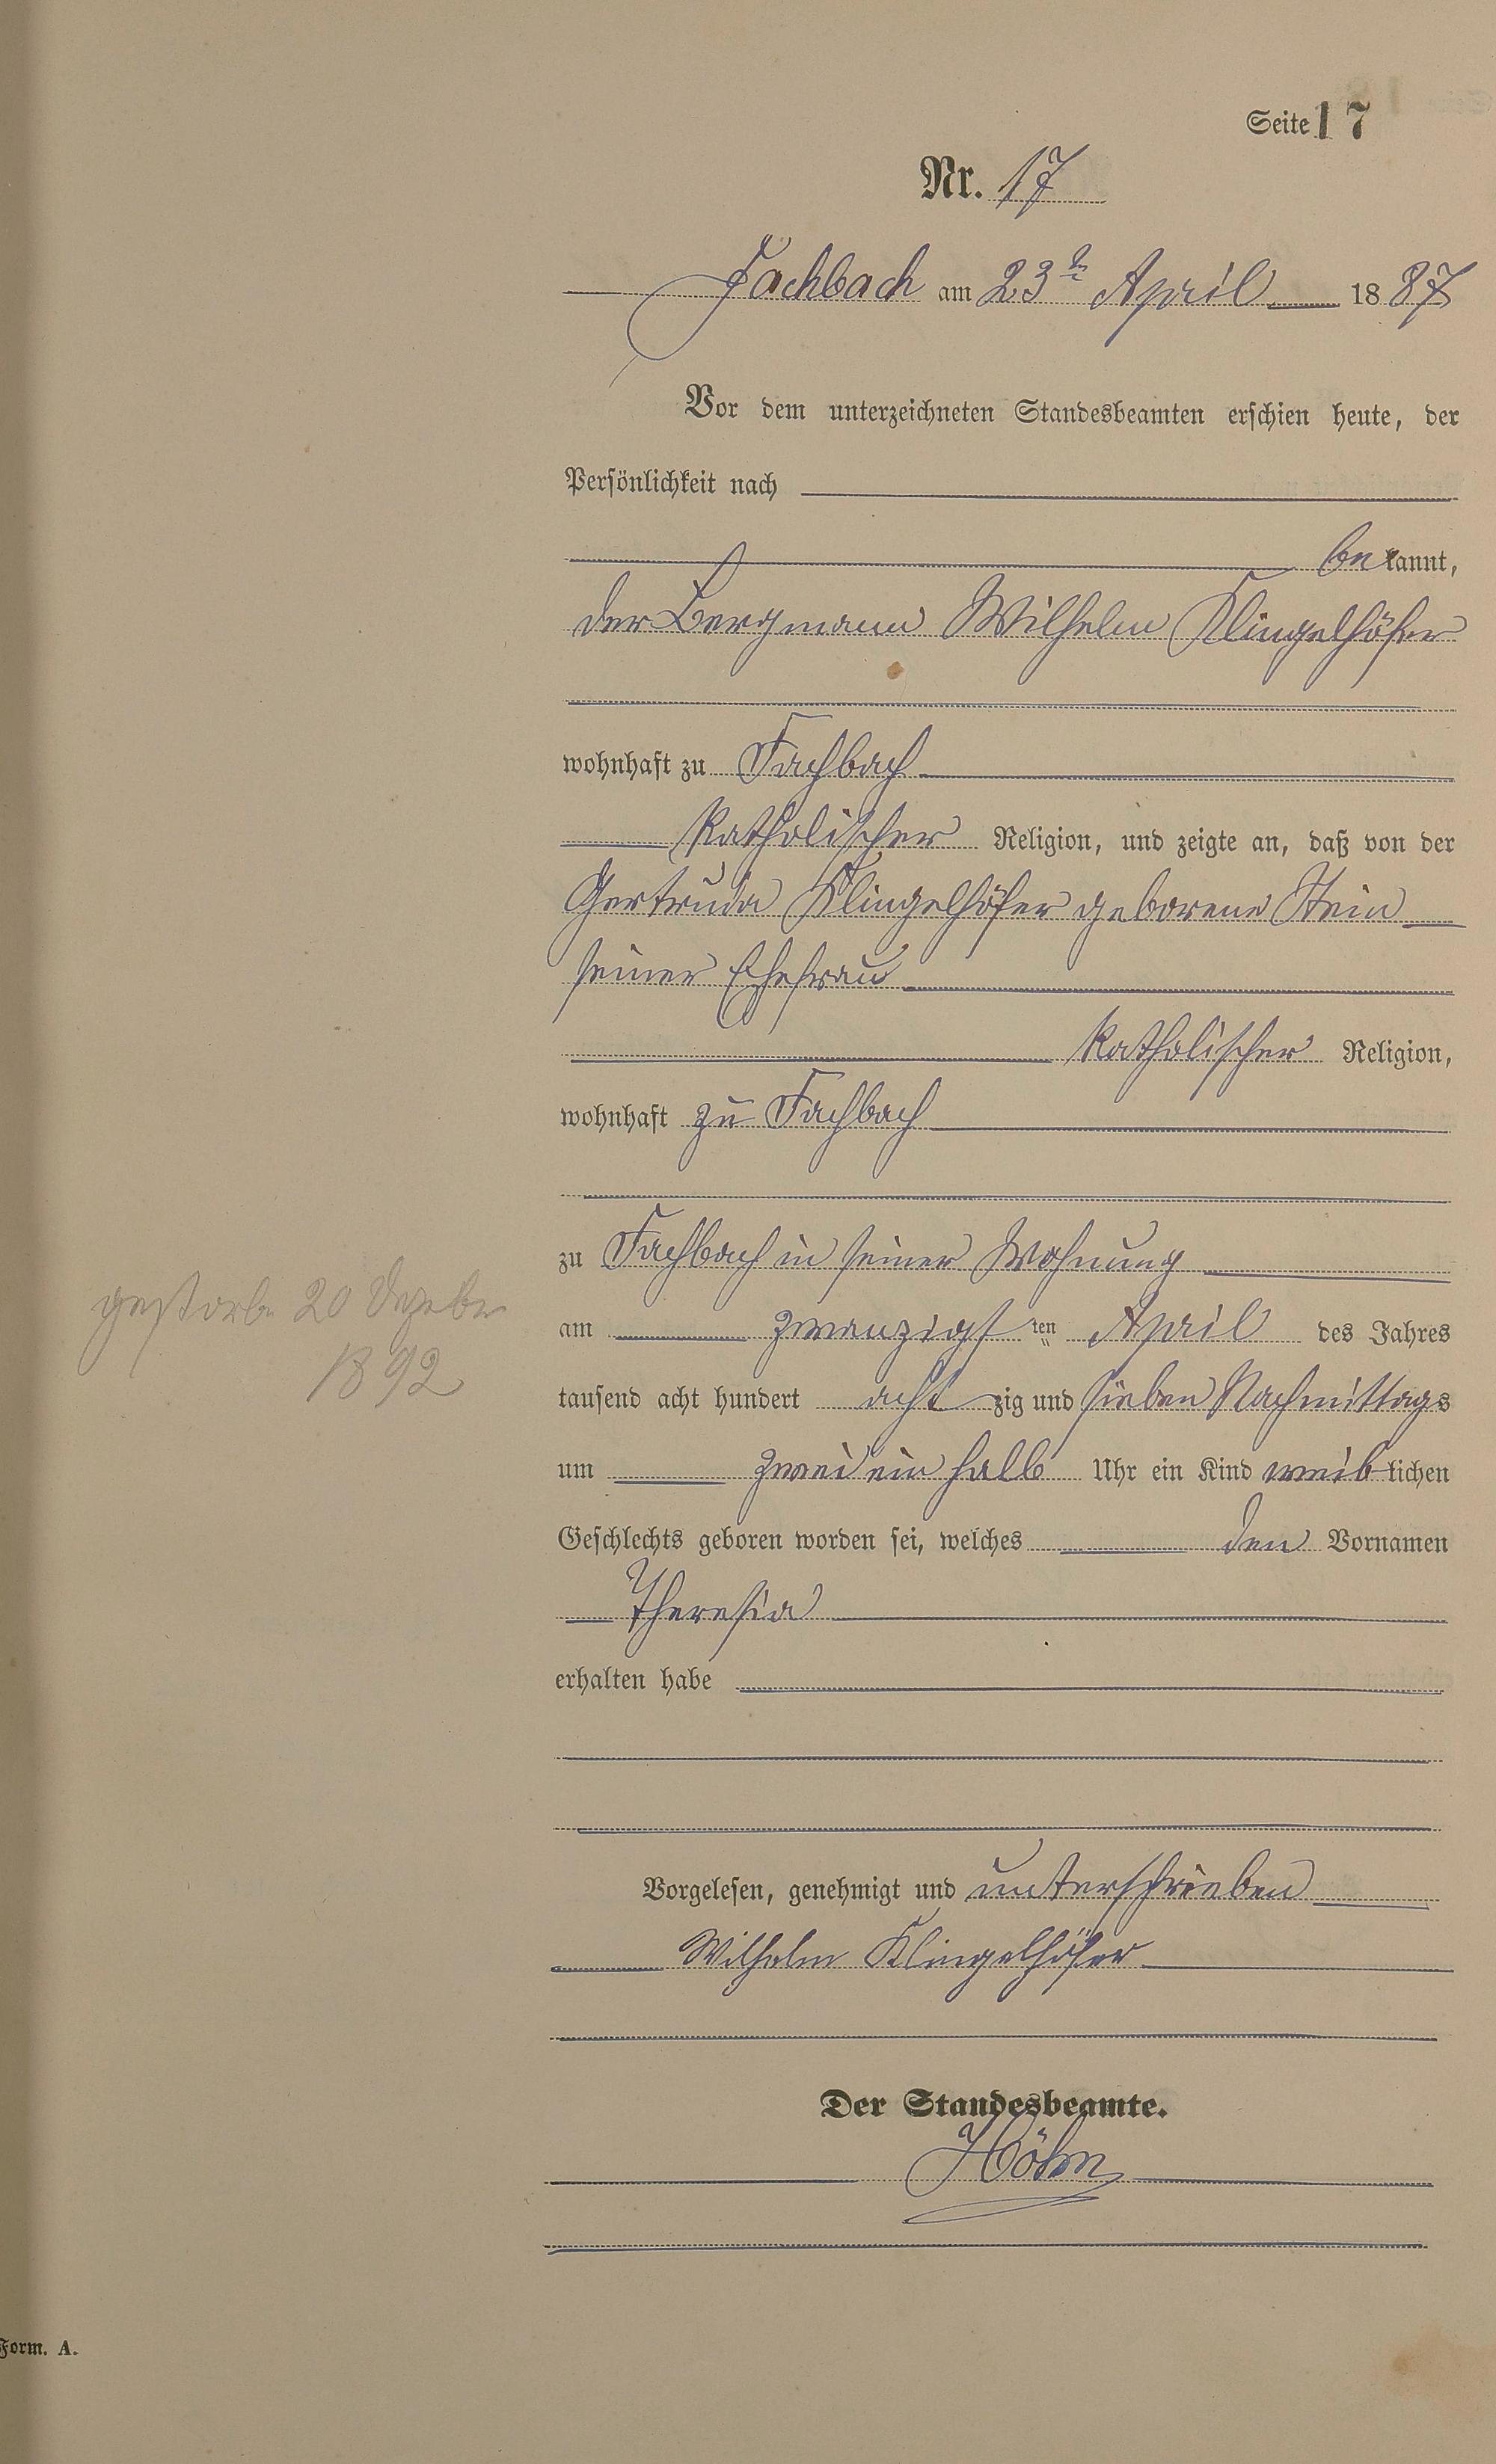 Seite 17
Nr. 17
Fachbach am 23ten April 1887
Vor dem unterzeichneten Standesbeamten erschien heute, der
Persönlichkeit nach
bekannt,
der Bergmann Wilhelm Klingelhöfer
wohnhaft zu Fachbach
katholischer Religion, und zeigte an, daß von der
Gertruda Klingelhöfer geborene Stein
seiner Ehefrau
katholischer Religion,
wohnhaft zu Fachbach
zu Fachbach in seiner Wohnung
gestorbe 20 Dezeber
1892
am zwanzigsten April des Jahres
tausend acht hundert achtzig und sieben Nachmittags
um zwei ein halb Uhr ein Kind weiblichen
Geschlechts geboren worden sei, welches den Vornamen
Theresia
erhalten habe
Vorgelesen, genehmigt und unterschrieben
Wilhelm Klingelhöfer
Der Standesbeamte.
Höhn
Form. A.